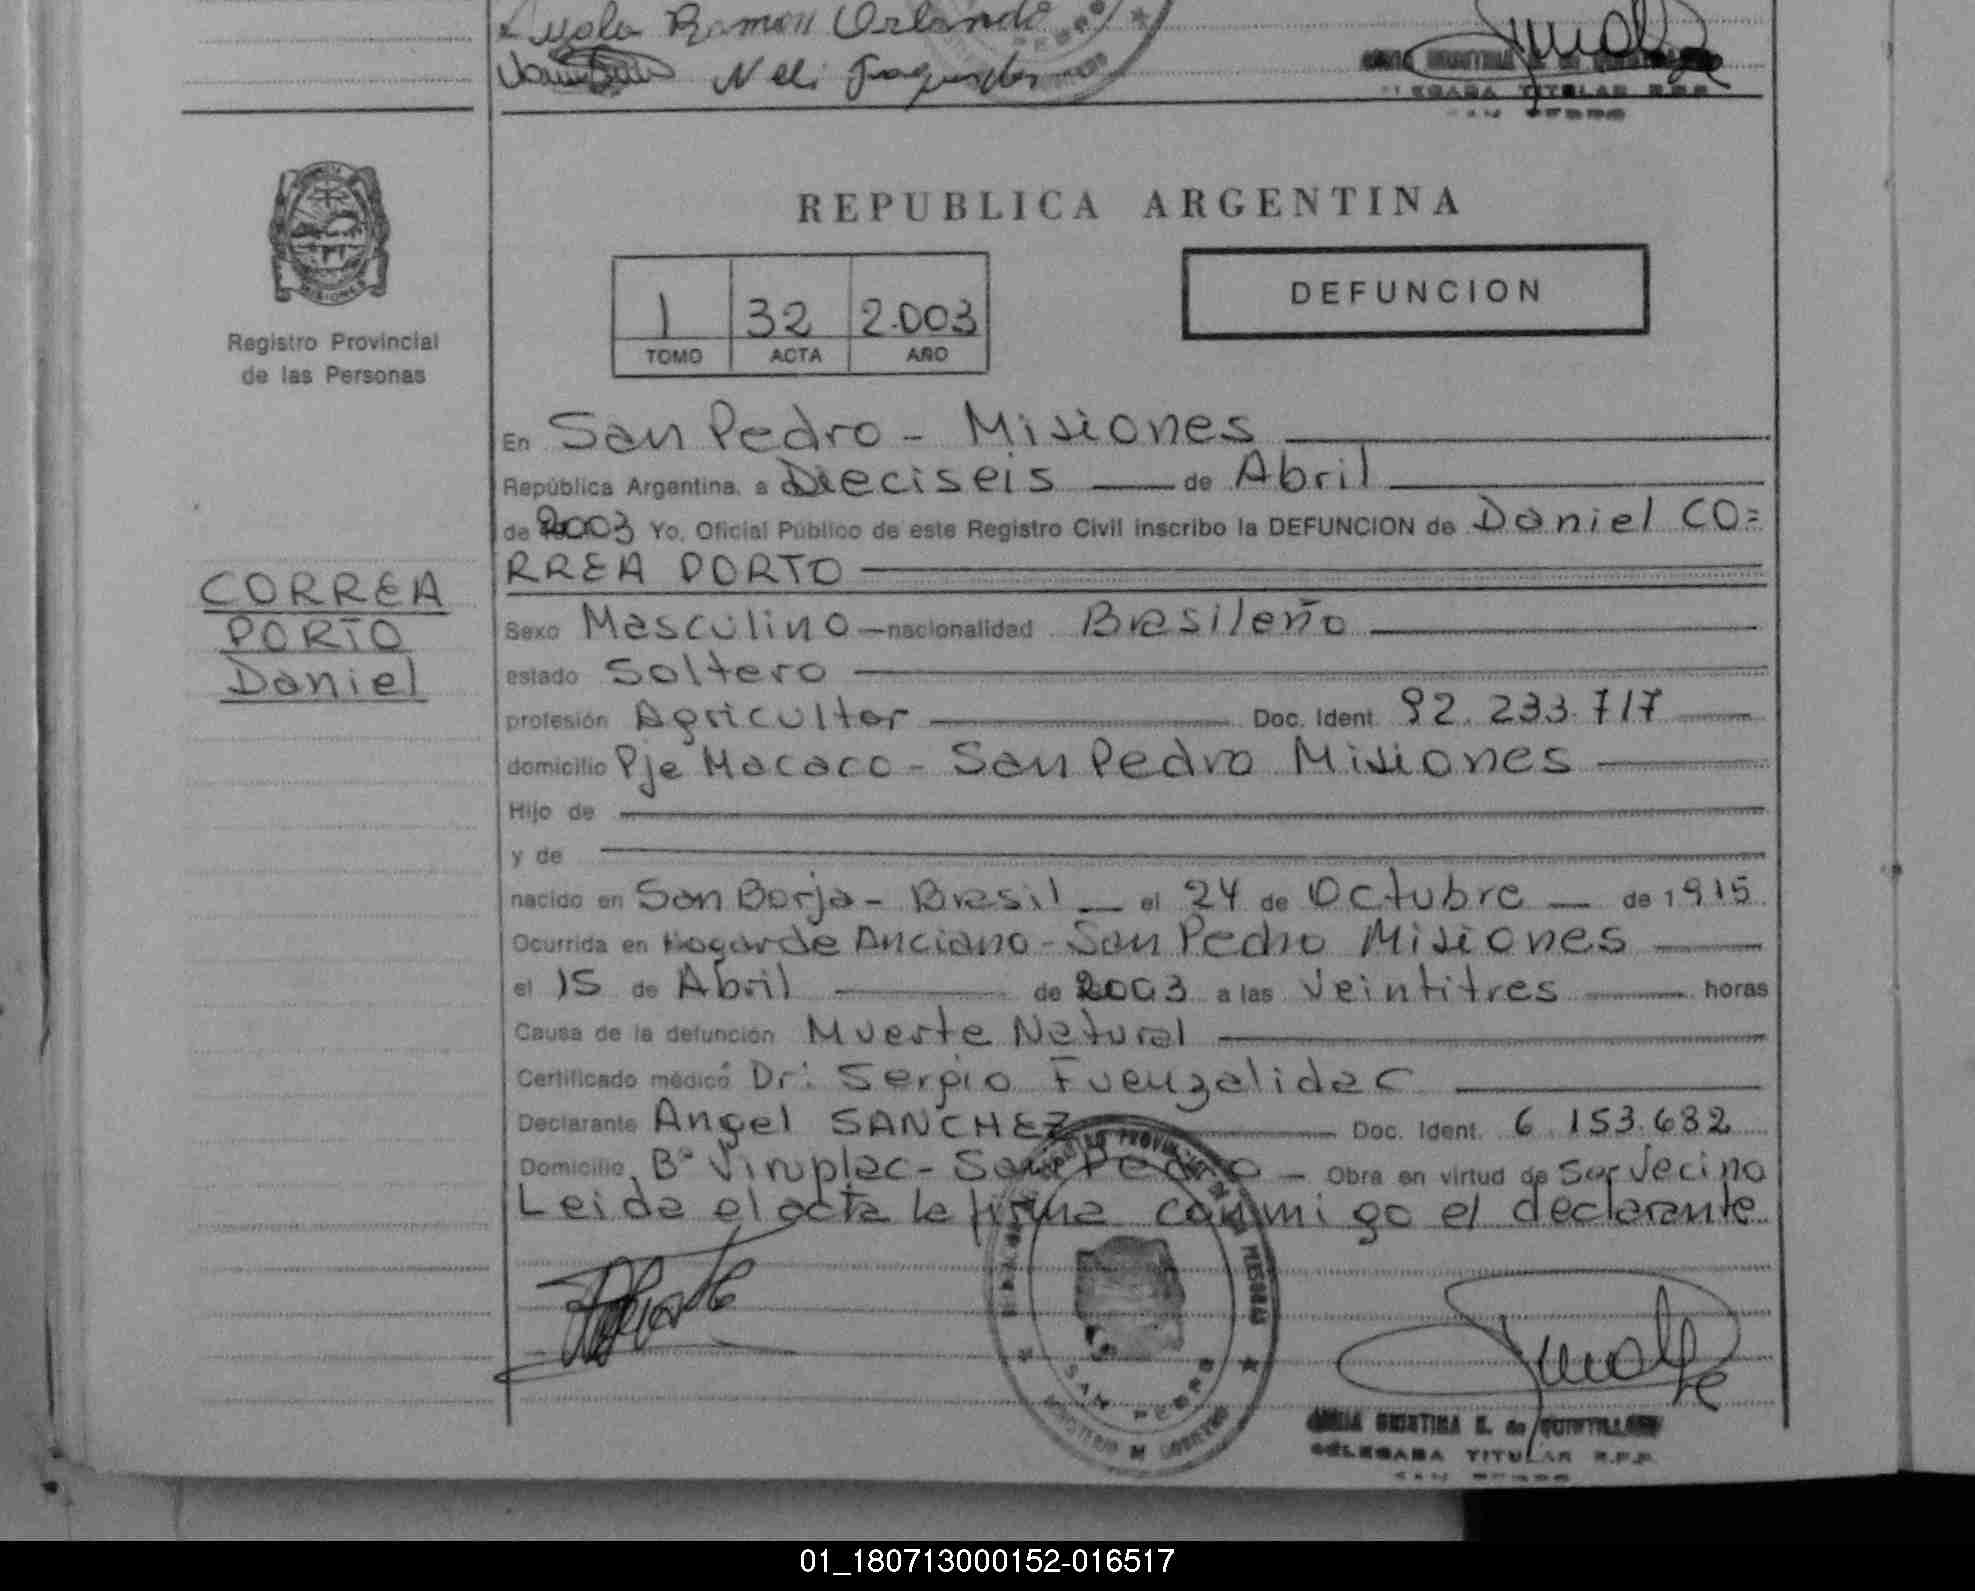 Ramon Orlando
Neli
DELEGADA TITULAR R.P.P.
SAN PEDRO
MISIONES
Registro Provincial
de las Personas
REPUBLICA ARGENTINA
1 32 2.003
TOMO ACTA AÑO
DEFUNCION
En San Pedro - Misiones
República Argentina, a Dieciseis de Abril
de 2003 Yo, Oficial Público de este Registro Civil inscribo la DEFUNCION de Daniel CO=
RREA PORTO
CORREA
PORTO
Daniel
Sexo Masculino - nacionalidad Brasileño
estado Soltero
profesión Agricultor Doc. Ident. 92.233.717
domicilio Pje Macaco - San Pedro Misiones
Hijo de
y de
nacido en San Borja - Brasil el 24 de Octubre de 1915
Ocurrida en Hogar de Anciano - San Pedro Misiones
el 15 de Abril de 2003 a las Veintitres horas
Causa de la defunción Muerte Natural
Certificado médico Dr: Sergio Fuenzalida C
Declarante Angel SANCHEZ Doc. Ident. 6.153.632
Domicilio, Bº Viruplac - San Pedro - Obra en virtud de Ser Vecino
Leida el acta la firma conmigo el declarante
SAN PEDRO
MINISTERIO DE GOBIERNO
DELEGADA TITULAR R.P.P.
SAN PEDRO
01_180713000152-016517